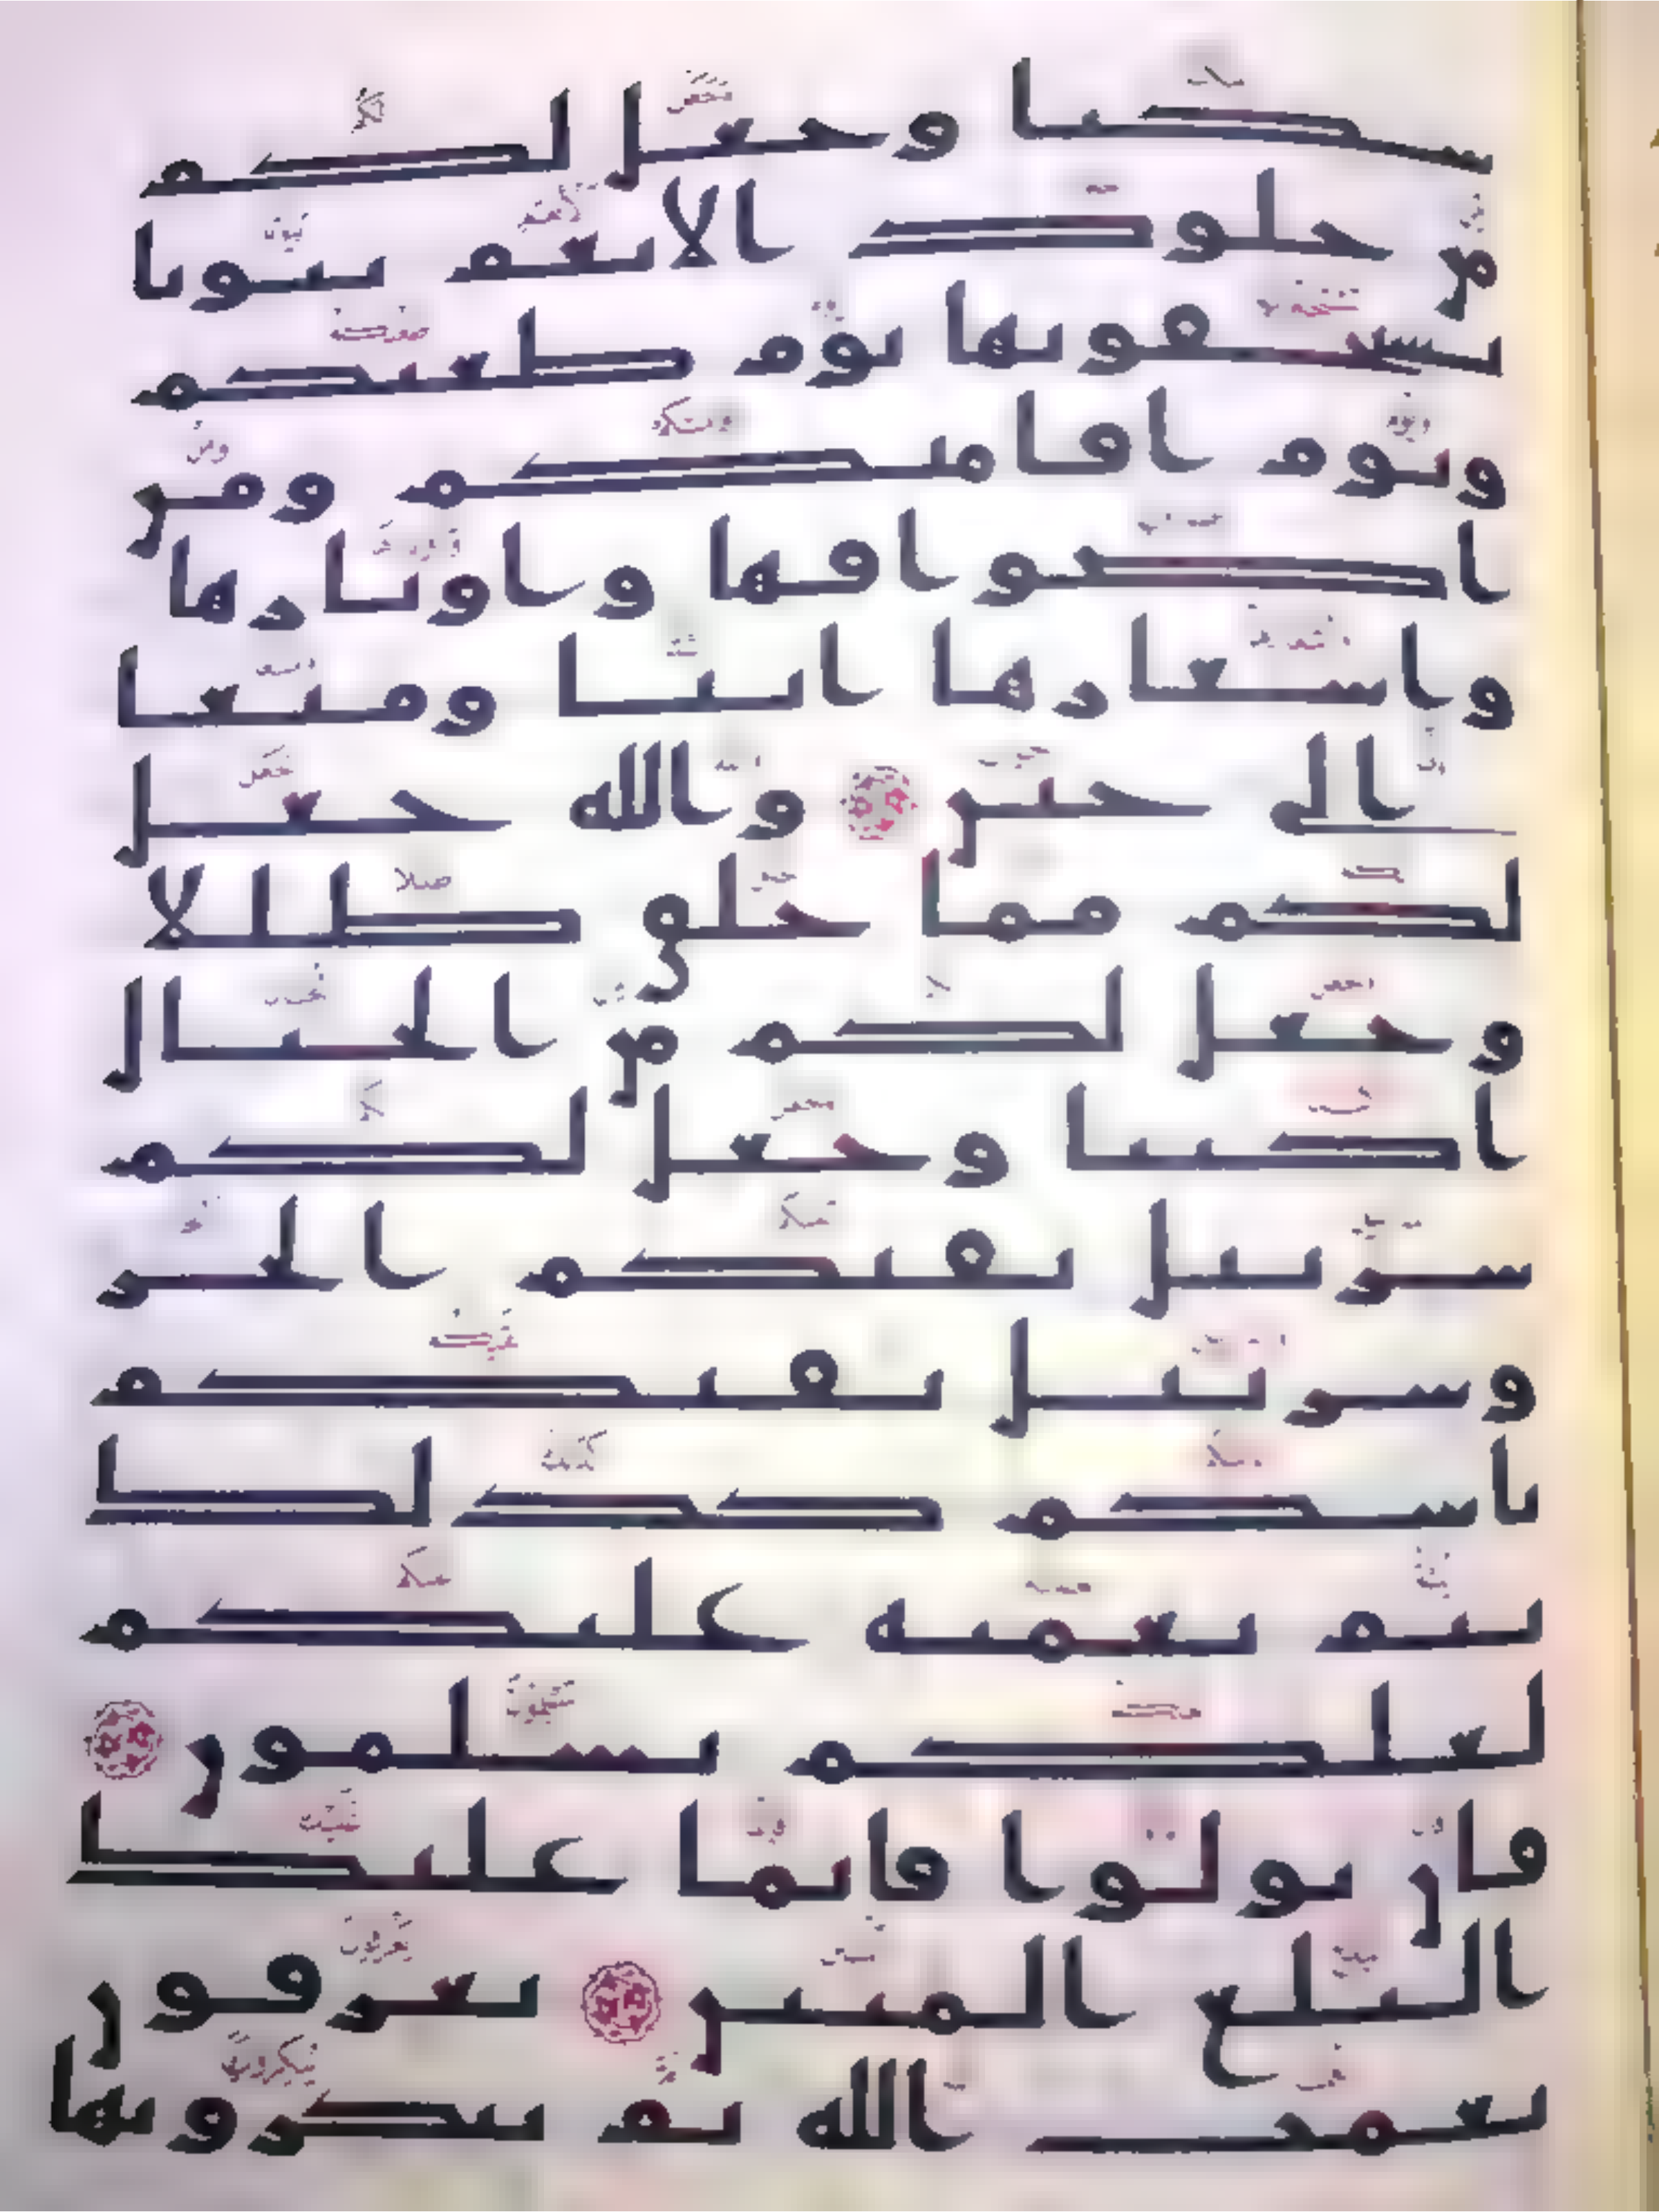 سكنا وجعل لكم
من جلود الانعم بيوتا
تستخفونها يوم ظعنكم
ويوم اقامتكم ومن
اصوافها واوبارها
واشعارها اثثا ومتعا
الى حين والله جعل
لكم مما خلق ظللا
وجعل لكم من الجبال
اكننا وجعل لكم
سربيل تقيكم الحر
وسربيل تقيكم
باسكم كذلك
يتم نعمته عليكم
لعلكم تسلمون
فان تولوا فانما عليك
البلغ المبين يعرفون
نعمت الله ثم ينكرونها